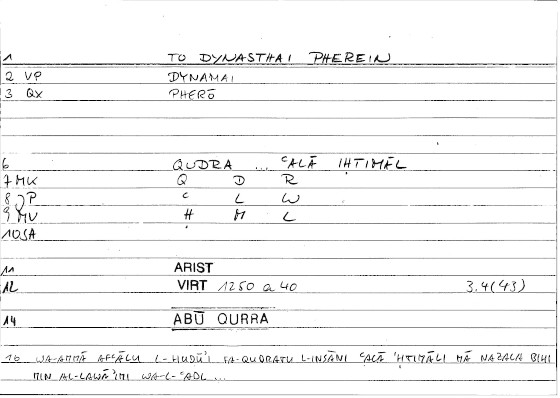 1 TO DYNASTHAI PHEREIN
2 VP DYNAMAI
3 QX PHERŌ
6 QUDRA ... ʿALĀ IḤTIMĀL
7 MK Q D R
8 JP ʿ L W
9 MV Ḥ M L
10 SA
11 ARIST
12 VIRT 1250 a 40 3.4(43)
14 ABŪ QURRA
16 WA-AMMĀ AFʿĀLU L-HUDŪʾI FA-QUDRATU L-INSĀNI ʿALĀ ʾḤTIMĀLI MĀ NAZALA BIHI
MIN AL-LAWĀʾIMI WA-L-ʿADL ...